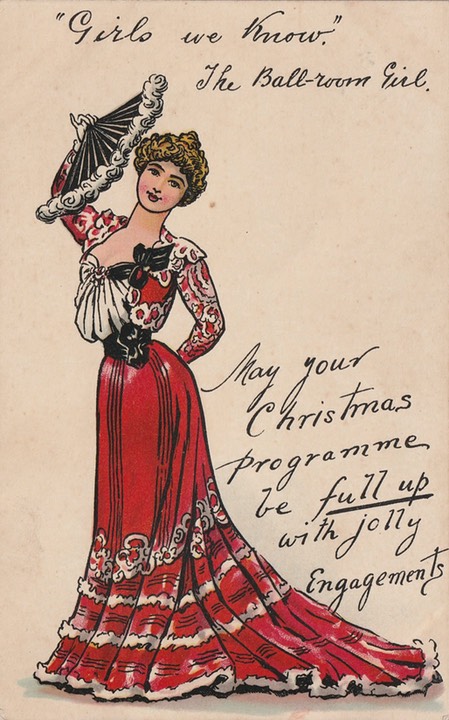 "Girls we Know."
The Ball-room Girl.
May your
Christmas
programme
be full up
with jolly
Engagements